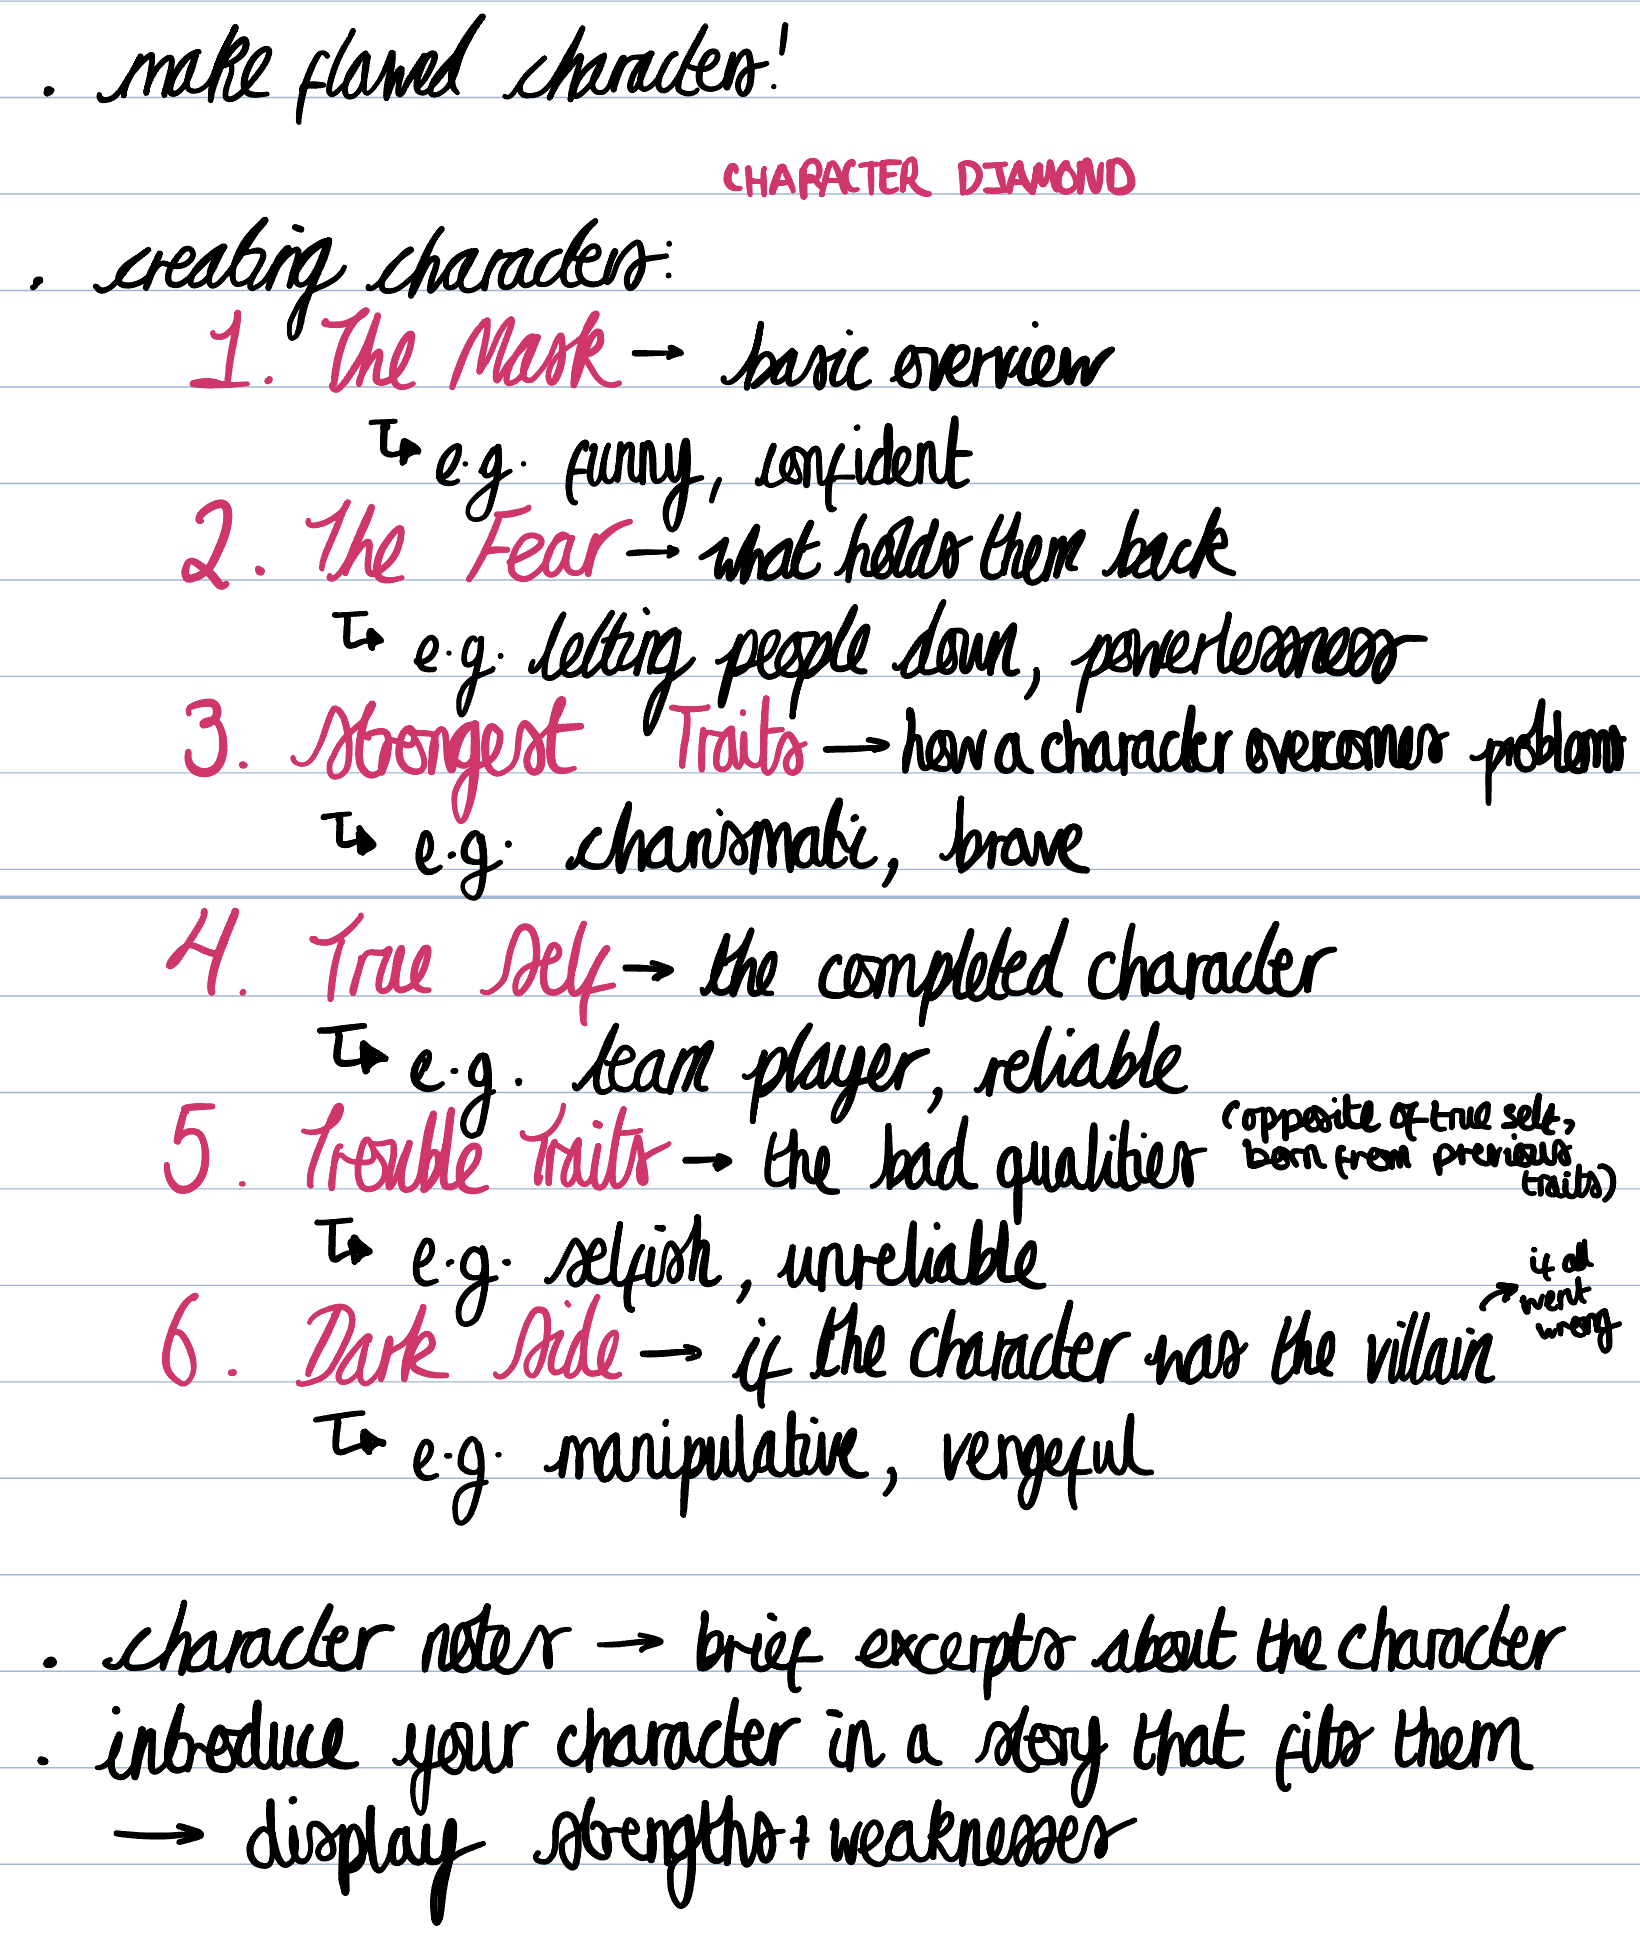 . make flawed characters!
CHARACTER DIAMOND
. creating characters:
1. The Mask → basic overview
↳ e.g. funny, confident
2. The Fear → what holds them back
↳ e.g. letting people down, powerlessness
3. Strongest Traits → how a character overcomes problems
↳ e.g. charismatic, brave
4. True Self → the completed character
↳ e.g. team player, reliable
5. Trouble Traits → the bad qualities (opposite of true self,
born from previous
traits)
↳ e.g. selfish, unreliable
6. Dark Side → if the character was the villain → if all
went
wrong
↳ e.g. manipulative, vengeful
. character notes → brief excerpts about the character
. introduce your character in a story that fits them
→ display strengths + weaknesses